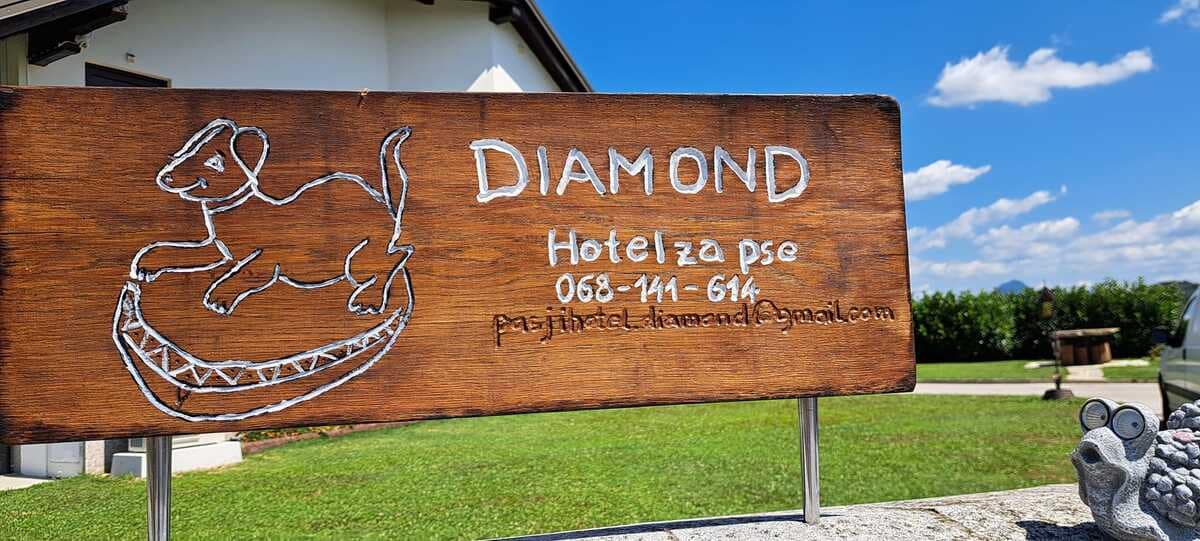 DIAMOND
Hotel za pse
068-141-614
pasjihotel.diamond@gmail.com